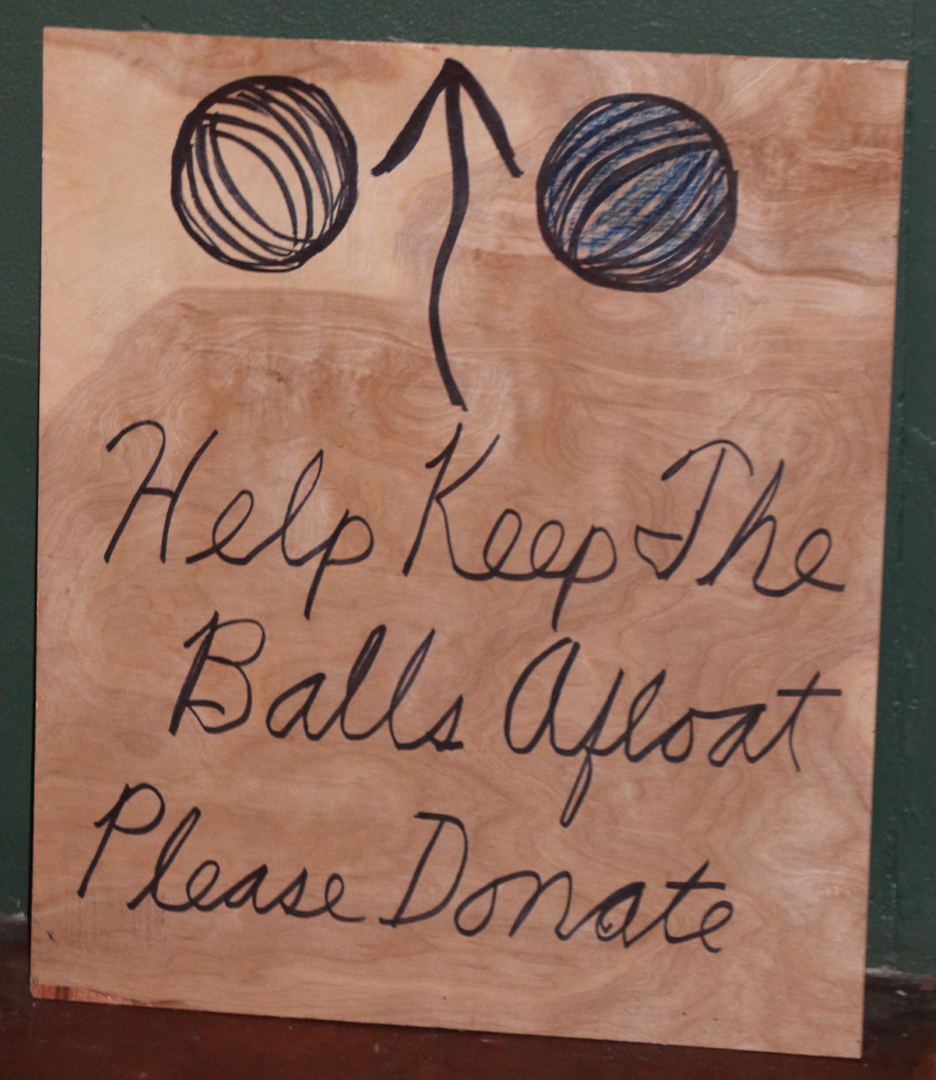 Help Keep The
Balls Afloat
Please Donate